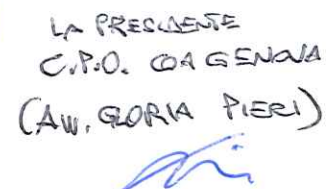 LA PRESIDENTE
C.P.O. COA GENOVA
(AVV. GLORIA PIERI)